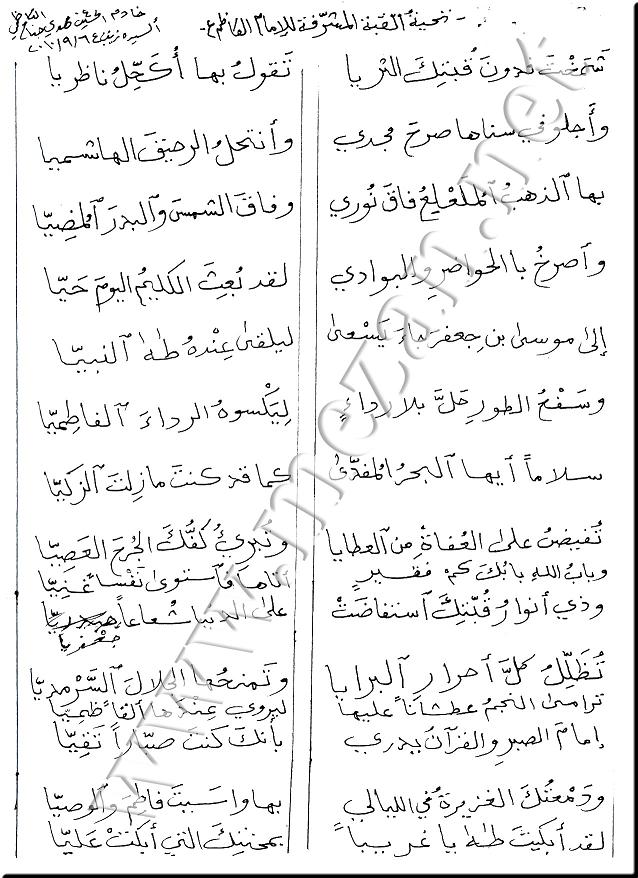 - تحية القبة المشرّفة للإمام الكاظم ع -
خادم الحسين
السيده زينب
شمختَ فدونَ قُبّتِكَ الثريا تَقولُ بها أُكَحِّلُ ناظريا
وأجلو في سناها صرحَ مجدي وأنتحلُ الرحيقَ الهاشميا
بها ٱلذهبُ ٱلمُلَعْلِعُ فاقَ نُوري وفاقَ الشمسَ وٱلبدرَ ٱلمُضِيّا
وٱصرخُ بالحواضرِ والبوادي لقد بُعِثَ الكليمُ اليومَ حَيّا
إلى موسى بن جعفر جاءَ يَسْعى ليلقى عِنْدهُ طٰهَ ٱلنبيّا
وسَفْحُ الطورِ حَلَّ بلا رداءٍ لِيَكْسوهُ الرداءَ ٱلفاطِميّا
سلاماً أيها ٱلبحرُ المُفدّىٰ كما قد كنتَ مازلتَ ٱلزكيّا
تُفيضُ على العُفاةِ مِن ٱلعطايا وتُبرئُ كفُّكَ الجُرحَ العَصِيّا
وبابُ اللهِ بابُكَ كمْ فقيرٍ أتاها فٱستوى نَفْساً غَنِيّا
وذي أنوارُ قُبّتِكَ ٱستفاضَتْ على الدنيا شُعاعاً جعفريّا
تُظَلِّلُ كلَّ أحرارِ ٱلبرايا وتمنحُها الجلالَ ٱلسَّرْمديّا
ترامى النجمُ عطشاناً عليها ليروي عِندها ٱلقا ظميّا
إمامَ الصبرِ والقرآنُ يدري بأنكَ كنتَ صبّاراً تَقِيّا
ودمْعتُكَ الغزيرةُ في الليالي بها واسيتَ فاطمَ وٱلوصيّا
لقد أبكيتَ طٰهَ يا غريباً بمحنتِكَ التي أبكتْ عَليّا
www.mezan.net